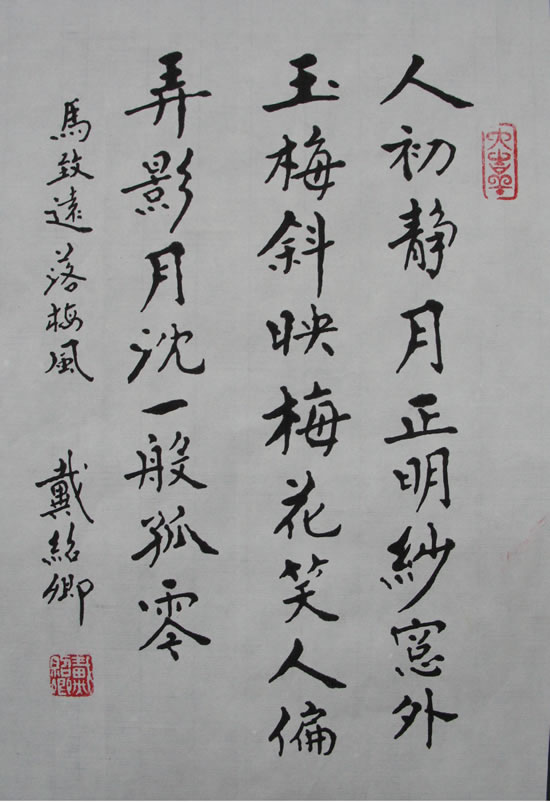 人初静月正明紗窓外
玉梅斜映梅花笑人偏
弄影月沈一般孤零
馬致遠落梅風
戴紹卿
戴紹卿